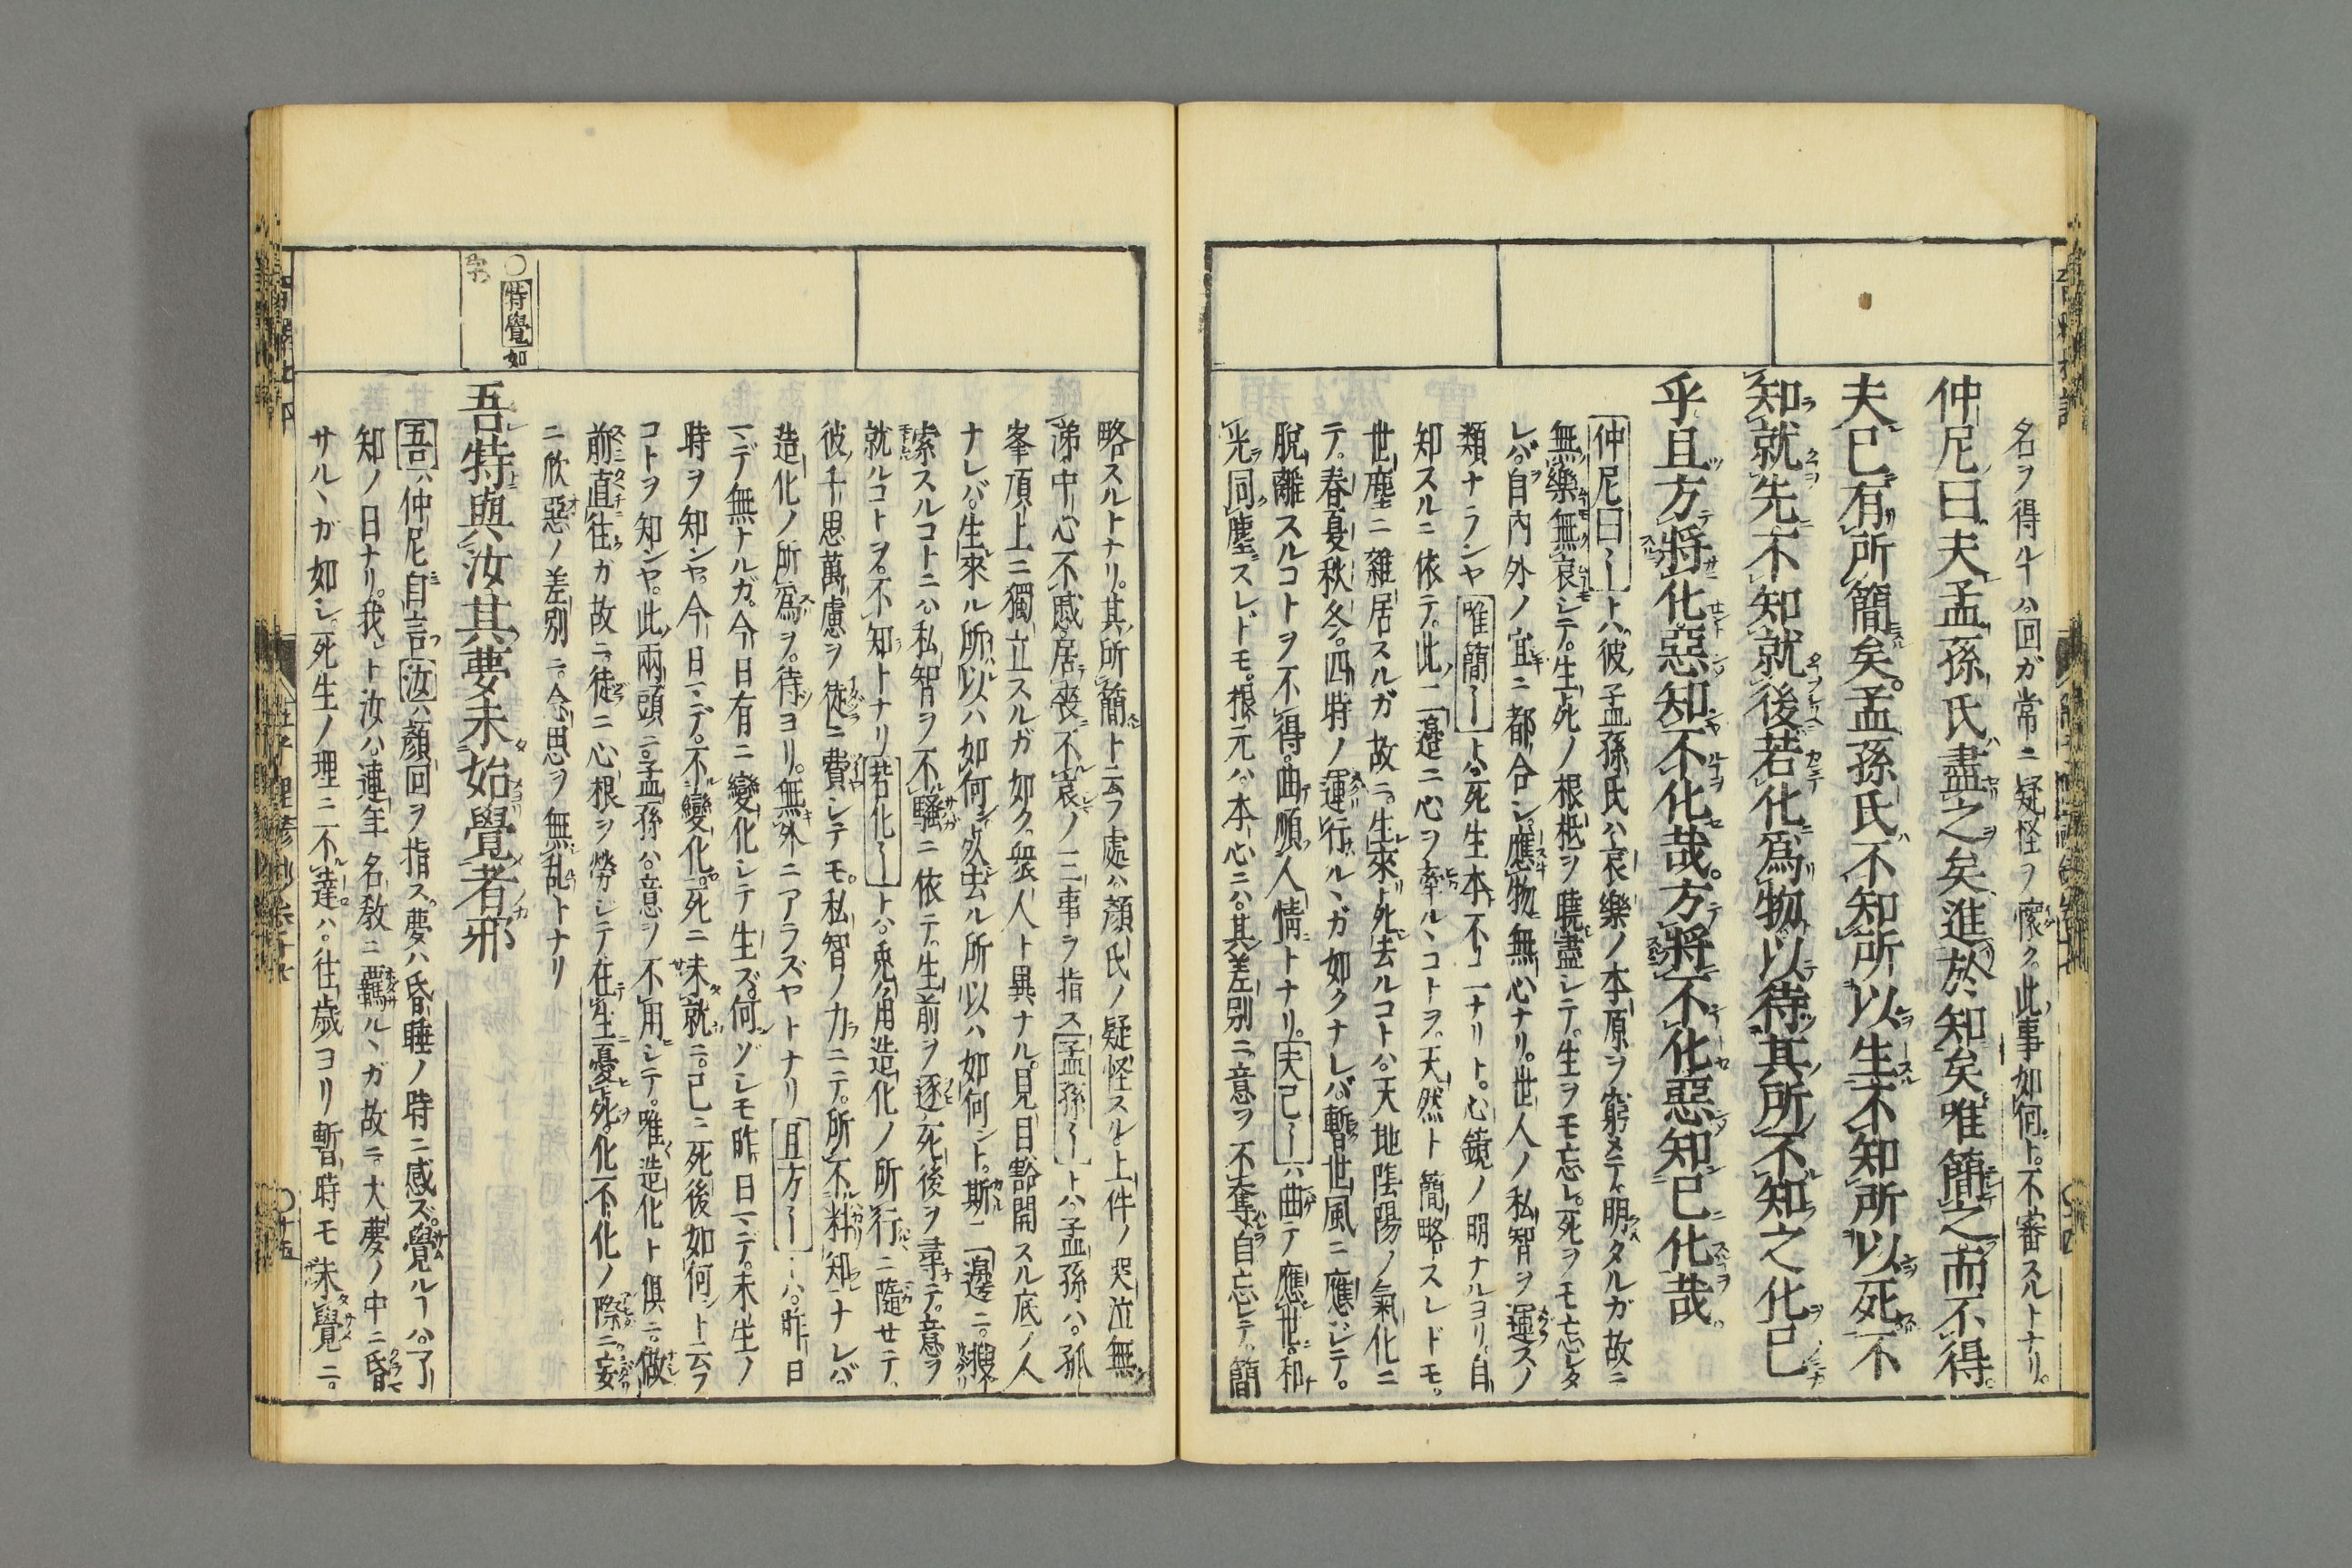 名ヲ得ルヿハ回ガ常ニ疑怪ヲ懷ク此事如何ト不審スルトナリ
仲尼曰夫孟孫氏盡之矣進於知矣唯簡之而不得
夫已有所簡矣孟孫氏不知所以生不知所以死不
知就先不知就後若化爲物以待其所不知之化已
乎且方將化惡知不化哉方將不化惡知已化哉
仲尼曰〡トハ彼孟孫氏ハ哀樂ノ本原ヲ窮メテ明タルガ故ニ
無樂無哀シテ生死ノ根柢ヲ曉盡シテ生ヲモ忘レ死ヲモ忘レタ
レバ自內外ノ宜ニ都合シ應物無心ナリ世人ノ私智ヲ運スノ
類ナランヤ唯簡〡トハ死生本不二ナリト心鏡ノ明ナルヨリ自
知スルニ依テ此二邉ニ心ヲ牽ルヽコトヲ天然ト簡略スレドモ
世塵ニ雜居スルガ故ニ生來ト死去ルコトハ天地陰陽ノ氣化ニ
テ春夏秋冬四時ノ運行ルヽガ如クナレバ暫世風ニ應ジテ
脫離スルコトヲ不得曲順人情トナリ夫已〡ハ曲テ應世和
光同塵スレドモ根元ハ本心ニハ其差別ニ意ヲ不奪自忘レテ簡
略スルトナリ其所簡ト云フ處ハ顏氏ノ疑怪スル上件ノ哭泣無
涕中心不慼居喪不哀ノ三事ヲ指ス孟孫〡トハ孟孫ハ孤
峯頂上ニ獨立スルガ如ク衆人ト異ナル見目豁開スル底ノ人
ナレバ生來ル所以ハ如何シ死去ル所以ハ如何ント斯二邉ニ搜
索スルコトニハ私智ヲ不騷ニ依テ生前ヲ逐死後ヲ尋テ意ヲ
就ルコトヲ不知トナリ若化〡トハ兎角造化ノ所行ニ隨サセテ
彼千思萬慮ヲ徒ニ費シテモ私智ノ力ニテ所不料知ナレバ
造化ノ所爲ヲ待ヨリ無外ニアラズヤトナリ且方〡ハ昨日
マデ無ナルガ今日有ニ變化シテ生ズ何ゾレモ昨日マデ未生ノ
時ヲ知ンヤ今日マデ不變化死ニ未就ニ已ニ死後如何ント云フ
コトヲ知ンヤ此兩頭ニ孟孫ハ意ヲ不用シテ唯造化ト俱ニ做
前直往ガ故ニ徒ニ心根ヲ勞シテ在生憂死化不化ノ際ニ妄
ニ欣惡ノ差別ニ念思ヲ無亂トナリ
○特覺如
字
吾特與汝其夢未始覺者邪
吾ハ仲尼自言汝ハ顏回ヲ指ス夢ハ昏睡ノ時ニ感ズ覺ルヿハ了
知ノ日ナリ我ト汝ハ連年名敎ニ羈ルヽガ故ニ大夢ノ中ニ昏
サルヽガ如シ死生ノ理ニ不達ハ往歲ヨリ暫時モ未覺ニ